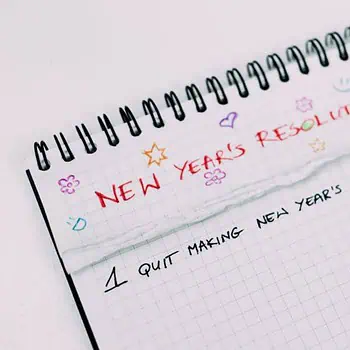 NEW YEAR'S RESOLUT
1 QUIT MAKING NEW YEAR'S